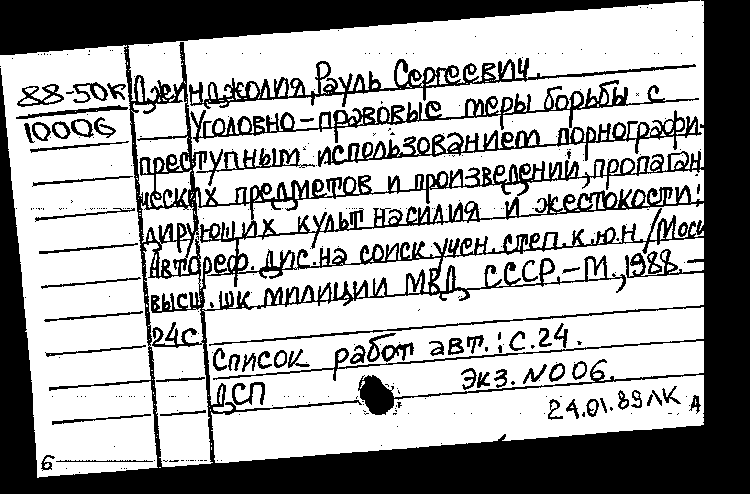 88-50к Джинджолия, Рауль Сергеевич.
10006 Уголовно-правовые меры борьбы с
преступным использованием порнографи-
ческих предметов и произведений, пропаган
дирующих культ насилия и жестокости:
Автореф. дис. на соиск. учен. степ. к.ю.н. /Моск
высш. шк милиции МВД СССР.-М., 1988.-
24с
Список работ авт.: с.24.
ДСП Экз. N006.
24.01.89 ЛК А
6